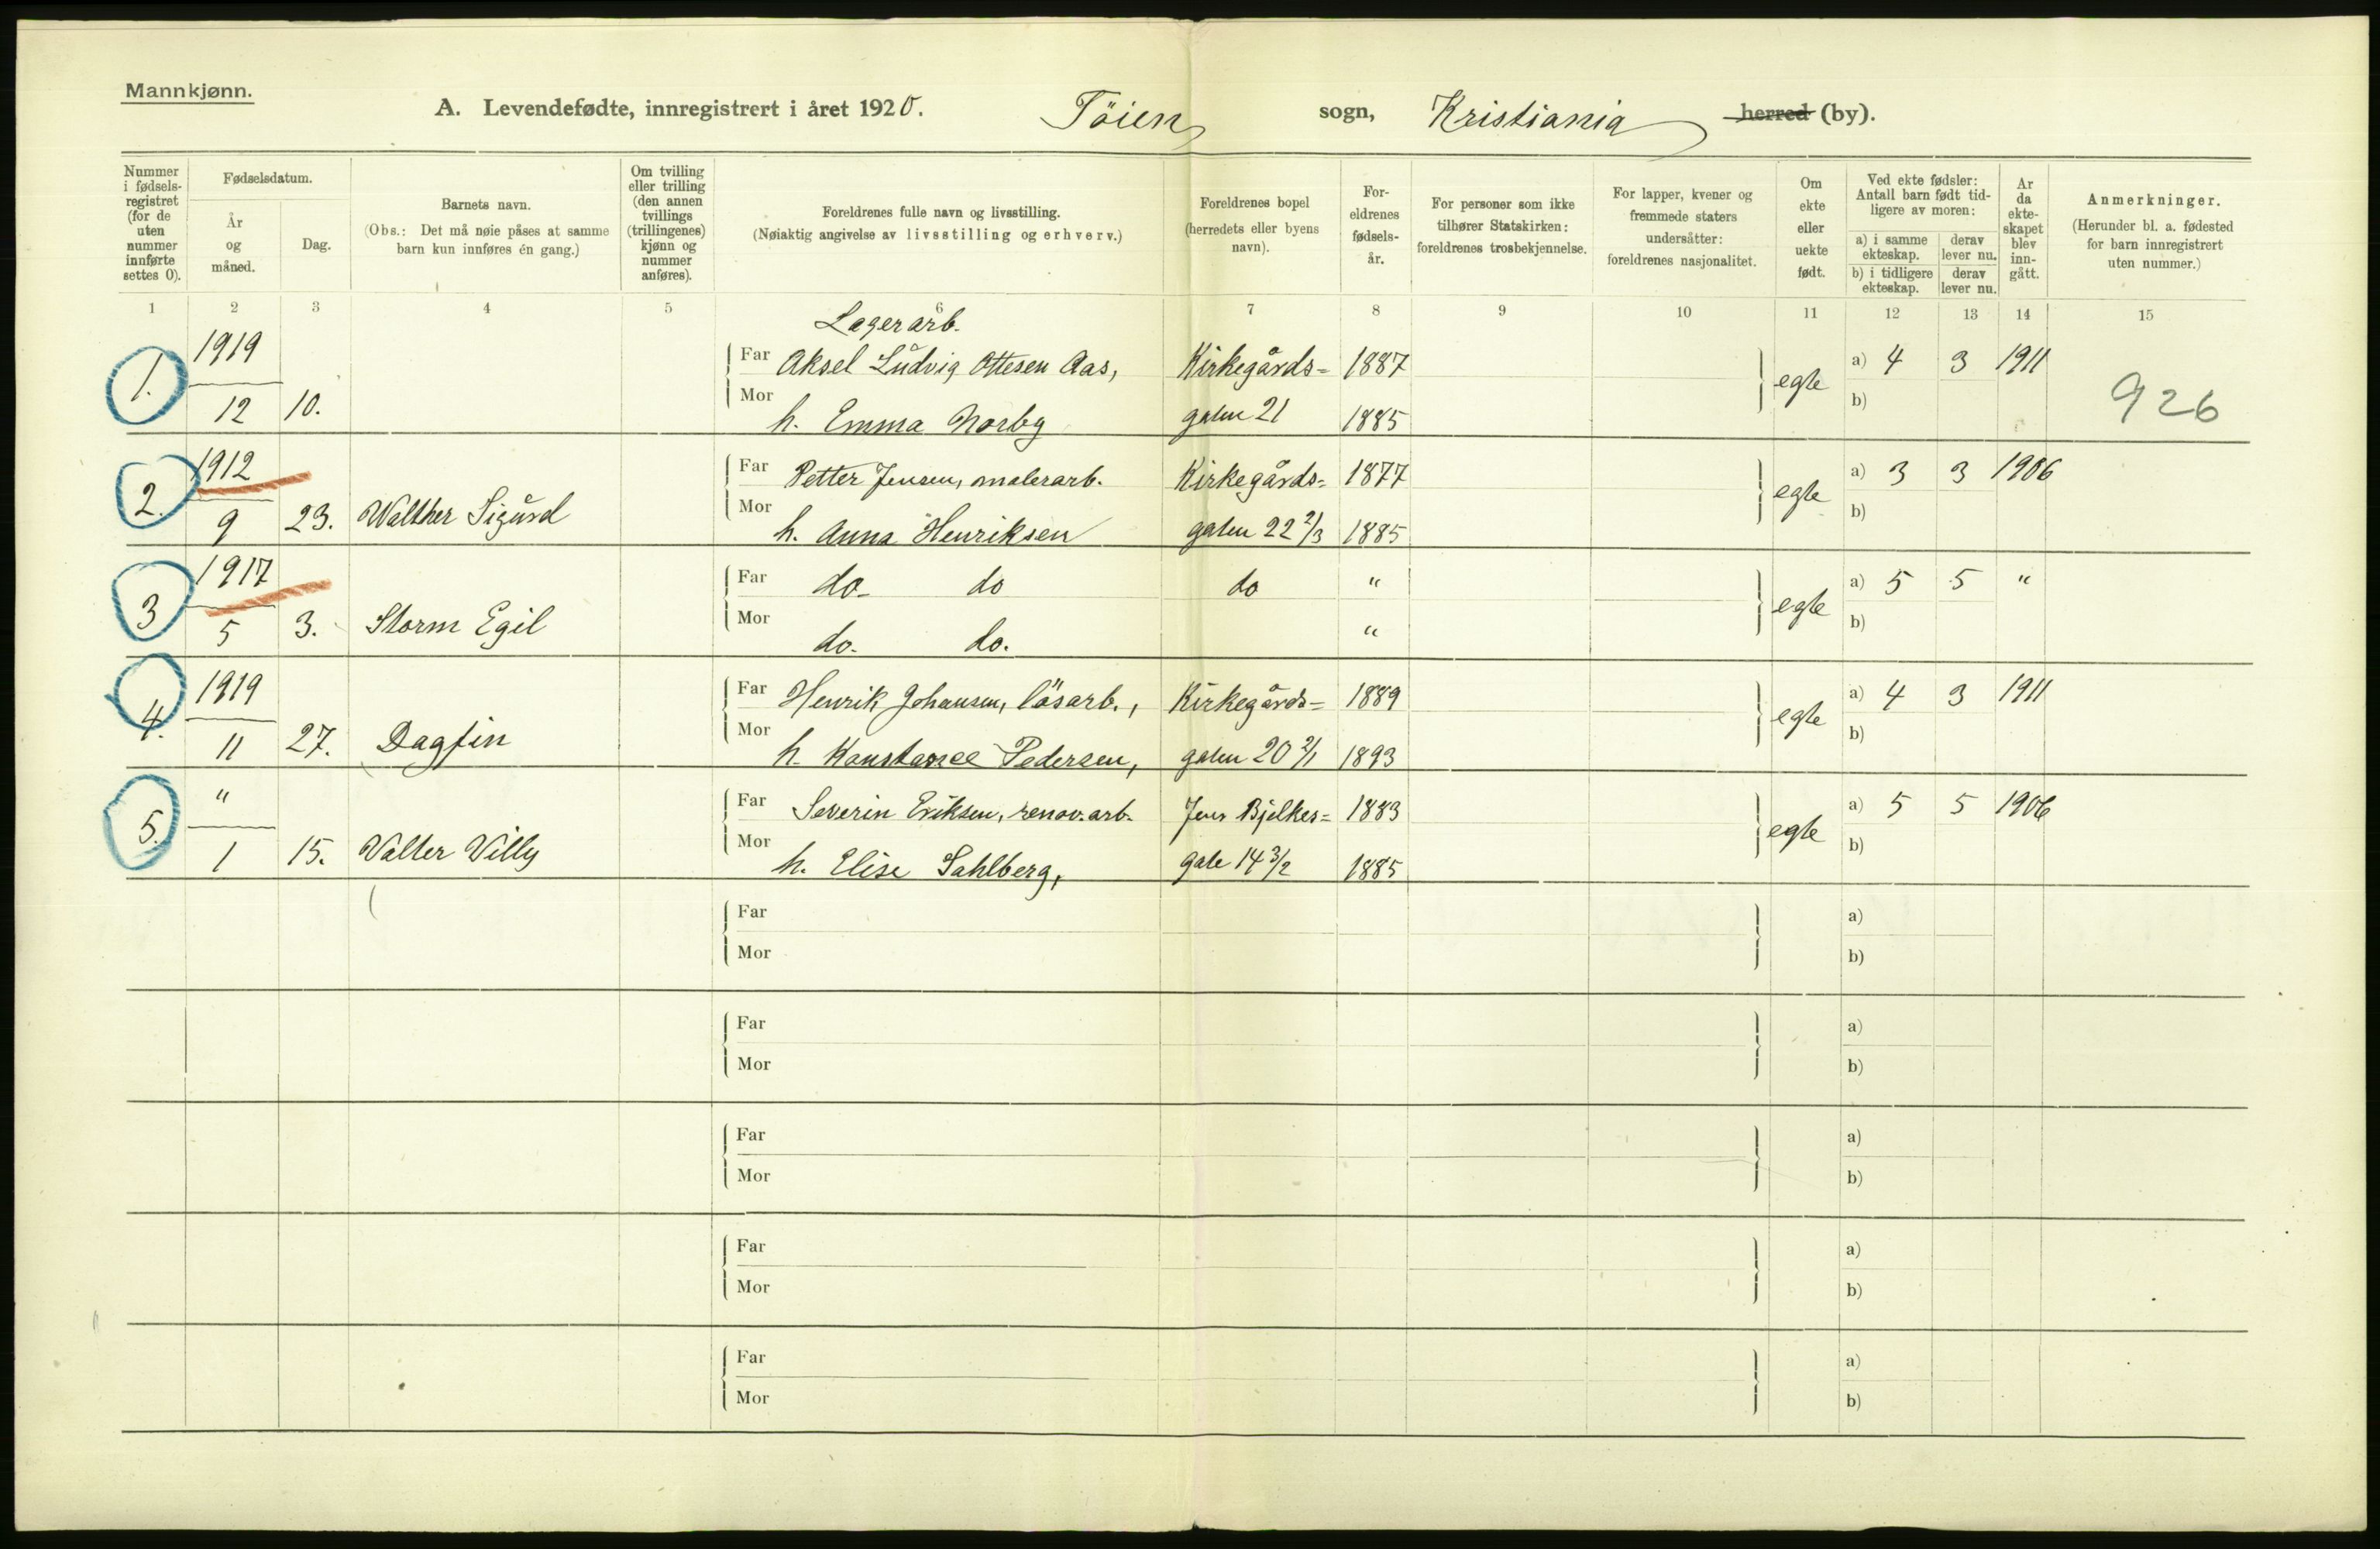 Mannkjønn.
A. Levendefødte, innregistrert i året 1920. Töien sogn, Kristiania herred (by).
Nummer i fødsels-registret (for de uten nummer innførte settes 0).
Fødselsdatum.
År og måned.
Dag.
Barnets navn.
(Obs.: Det må nøie påses at samme barn kun innføres én gang.)
Om tvilling eller trilling (den annen tvillings (trillingenes) kjønn og nummer anføres).
Foreldrenes fulle navn og livsstilling.
(Nøiaktig angivelse av livsstilling og erhverv.)
Foreldrenes bopel (herredets eller byens navn).
For-eldrenes fødsels-år.
For personer som ikke tilhører Statskirken: foreldrenes trosbekjennelse.
For lapper, kvener og fremmede staters undersåtter: foreldrenes nasjonalitet.
Om ekte eller uekte født.
Ved ekte fødsler: Antall barn født tid-ligere av moren:
a) i samme ekteskap. derav lever nu.
b) i tidligere ekteskap. derav lever nu.
År da ekte-skapet blev inn-gått.
Anmerkninger.
(Herunder bl. a. fødested for barn innregistrert uten nummer.)
1 2 3 4 5 6 7 8 9 10 11 12 13 14 15
Lagerarb.
1. 1919 Far Aksel Ludvig Ottesen Aas, Kirkegårds= 1887 egte a) 4 3 1911
12 10. Mor h. Emma Norby galen 21 1885 b) 926
2. 1912 Far Petter Jensen, malerarb. Kirkegårds= 1877 egte a) 3 3 1906
9 23. Walther Sigurd Mor h. Anna Henriksen gaten 22 2/3 1885 b)
3 1917 Far do. do do " egte a) 5 5 "
5 3. Storm Egil Mor do. do. " b)
4. 1919 Far Henrik Johansen, lösarb., Kirkegårds= 1889 egte a) 4 3 1911
11 27. Dagfin Mor h. Konstance Pedersen, gaten 20 2/1 1893 b)
5. " Far Severin Eriksen, renov.arb. Jens Bjelkes= 1883 egte a) 5 5 1906
1 15. Walter Willy Mor h. Elise Sahlberg, gate 14 3/2 1885 b)
Far a)
Mor b)
Far a)
Mor b)
Far a)
Mor b)
Far a)
Mor b)
Far a)
Mor b)